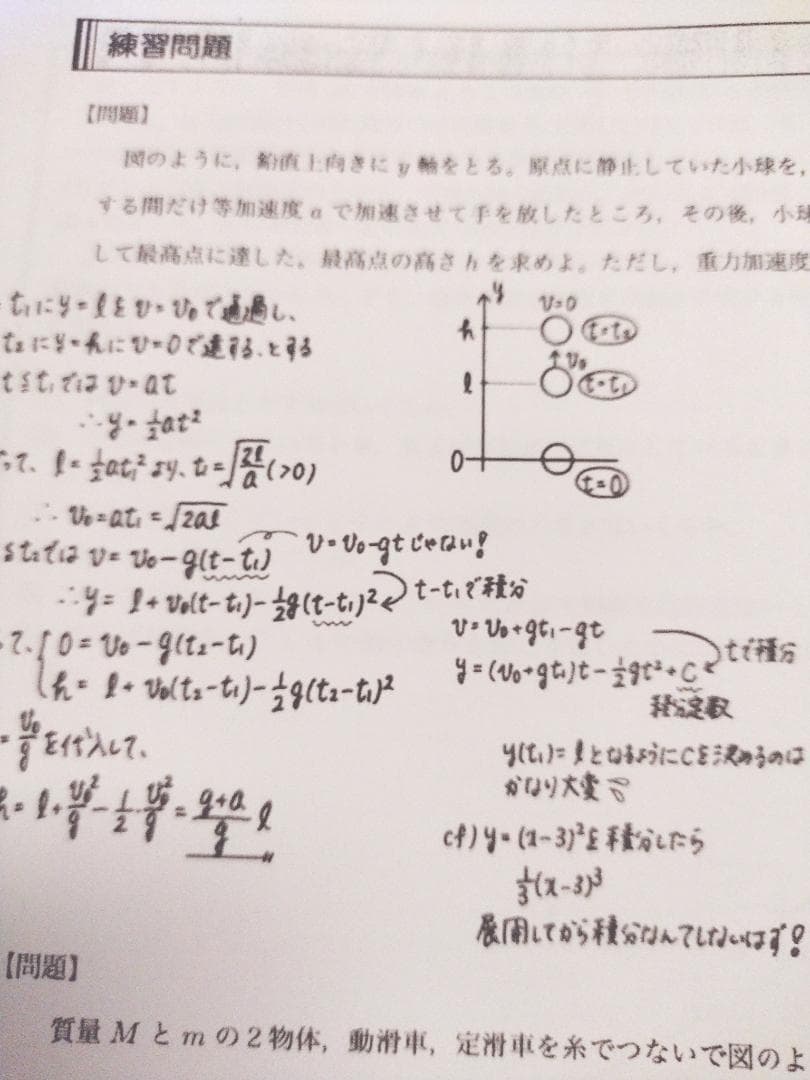 練習問題
【問題】
図のように，鉛直上向きに y 軸をとる。原点に静止していた小球を，
する間だけ等加速度 a で加速させて手を放したところ，その後，小球
して最高点に達した。最高点の高さ h を求めよ。ただし，重力加速度
t₁にy=lをv=v₀で通過し、
t₂にy=hにv=0で達する、とする
t≦t₁では v=at
∴y=½at²
て、l=½at₁²より、t₁=√(2l/a) (>0)
∴ v₀=at₁=√(2al)
≦t₂では v=v₀-g(t-t₁)
v=v₀-gtじゃない!
∴y=l+v₀(t-t₁)-½g(t-t₁)²
t-t₁で積分
て、{0=v₀-g(t₂-t₁)
h=l+v₀(t₂-t₁)-½g(t₂-t₁)²
=v₀/gを代入して、
h=l+v₀²/g-1/2・v₀²/g=(g+a)/g l
y
h
v=0
t=t₂
v₀
l
t=t₁
0
t=0
v=v₀+gt₁-gt
tで積分
y=(v₀+gt₁)t-½gt²+C
積分定数
y(t₁)=lとなるようにCを決めるのは
かなり大変
cf) y=(x-3)²を積分したら
⅓(x-3)³
展開してから積分なんてしないはず!
【問題】
質量 M と m の２物体，動滑車，定滑車を糸でつないで図のよ